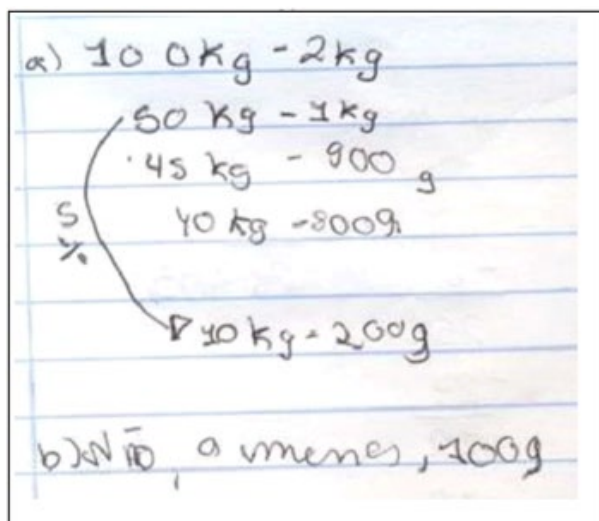 a) 100kg - 2kg
50 kg - 1kg
45 kg - 900 g
40 kg - 800g
5
%
10 kg - 200g
b) Não, a menos, 100g